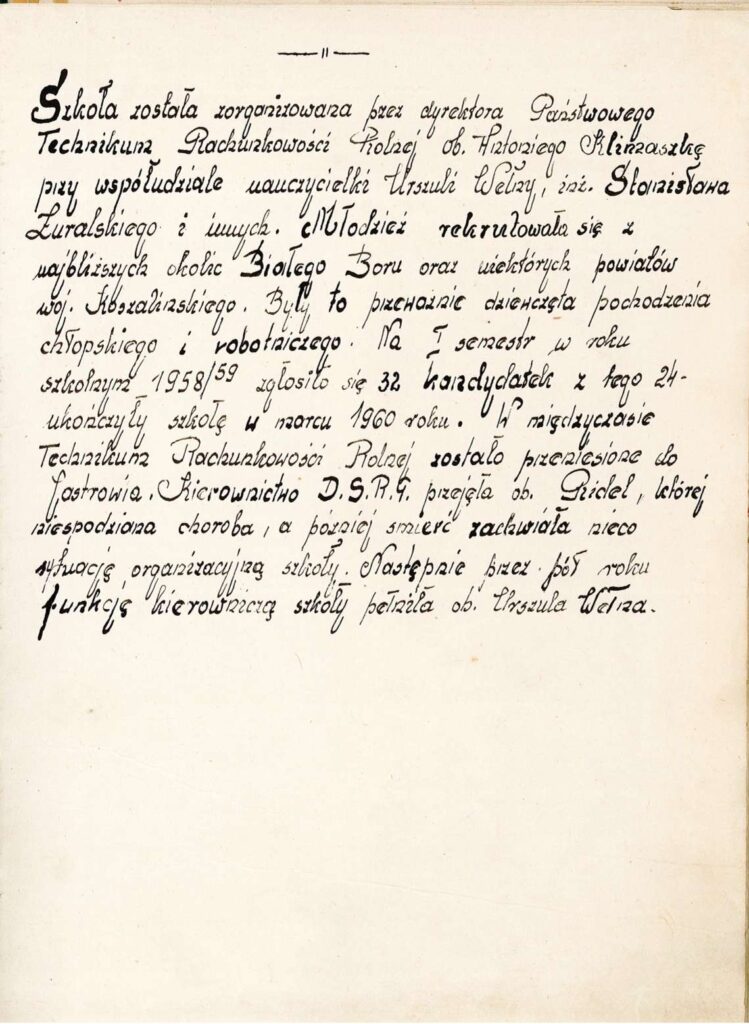 — 11 —
Szkoła została zorganizowana przez dyrektora Państwowego
Technikum Rachunkowości Rolnej ob. Antoniego Klimaszkę
przy współudziale nauczycielki Urszuli Wełny, inż. Stanisława
Żuralskiego i innych. Młodzież rekrutowała się z
najbliższych okolic Białego Boru oraz niektórych powiatów
woj. Koszalińskiego. Były to przeważnie dziewczęta pochodzenia
chłopskiego i robotniczego. Na I semestr w roku
szkolnym 1958/59 zgłosiło się 32 kandydatek z tego 24-
ukończyły szkołę w marcu 1960 roku. W międzyczasie
Technikum Rachunkowości Rolnej zostało przeniesione do
Jastrowia. Kierownictwo D.S.R.G. przejęła ob. Gridel, której
niespodziana choroba, a później smierć zachwiała nieco
sytuację organizacyjną szkoły. Następnie przez pół roku
funkcję kierowniczą szkoły pełniła ob. Urszula Wełna.